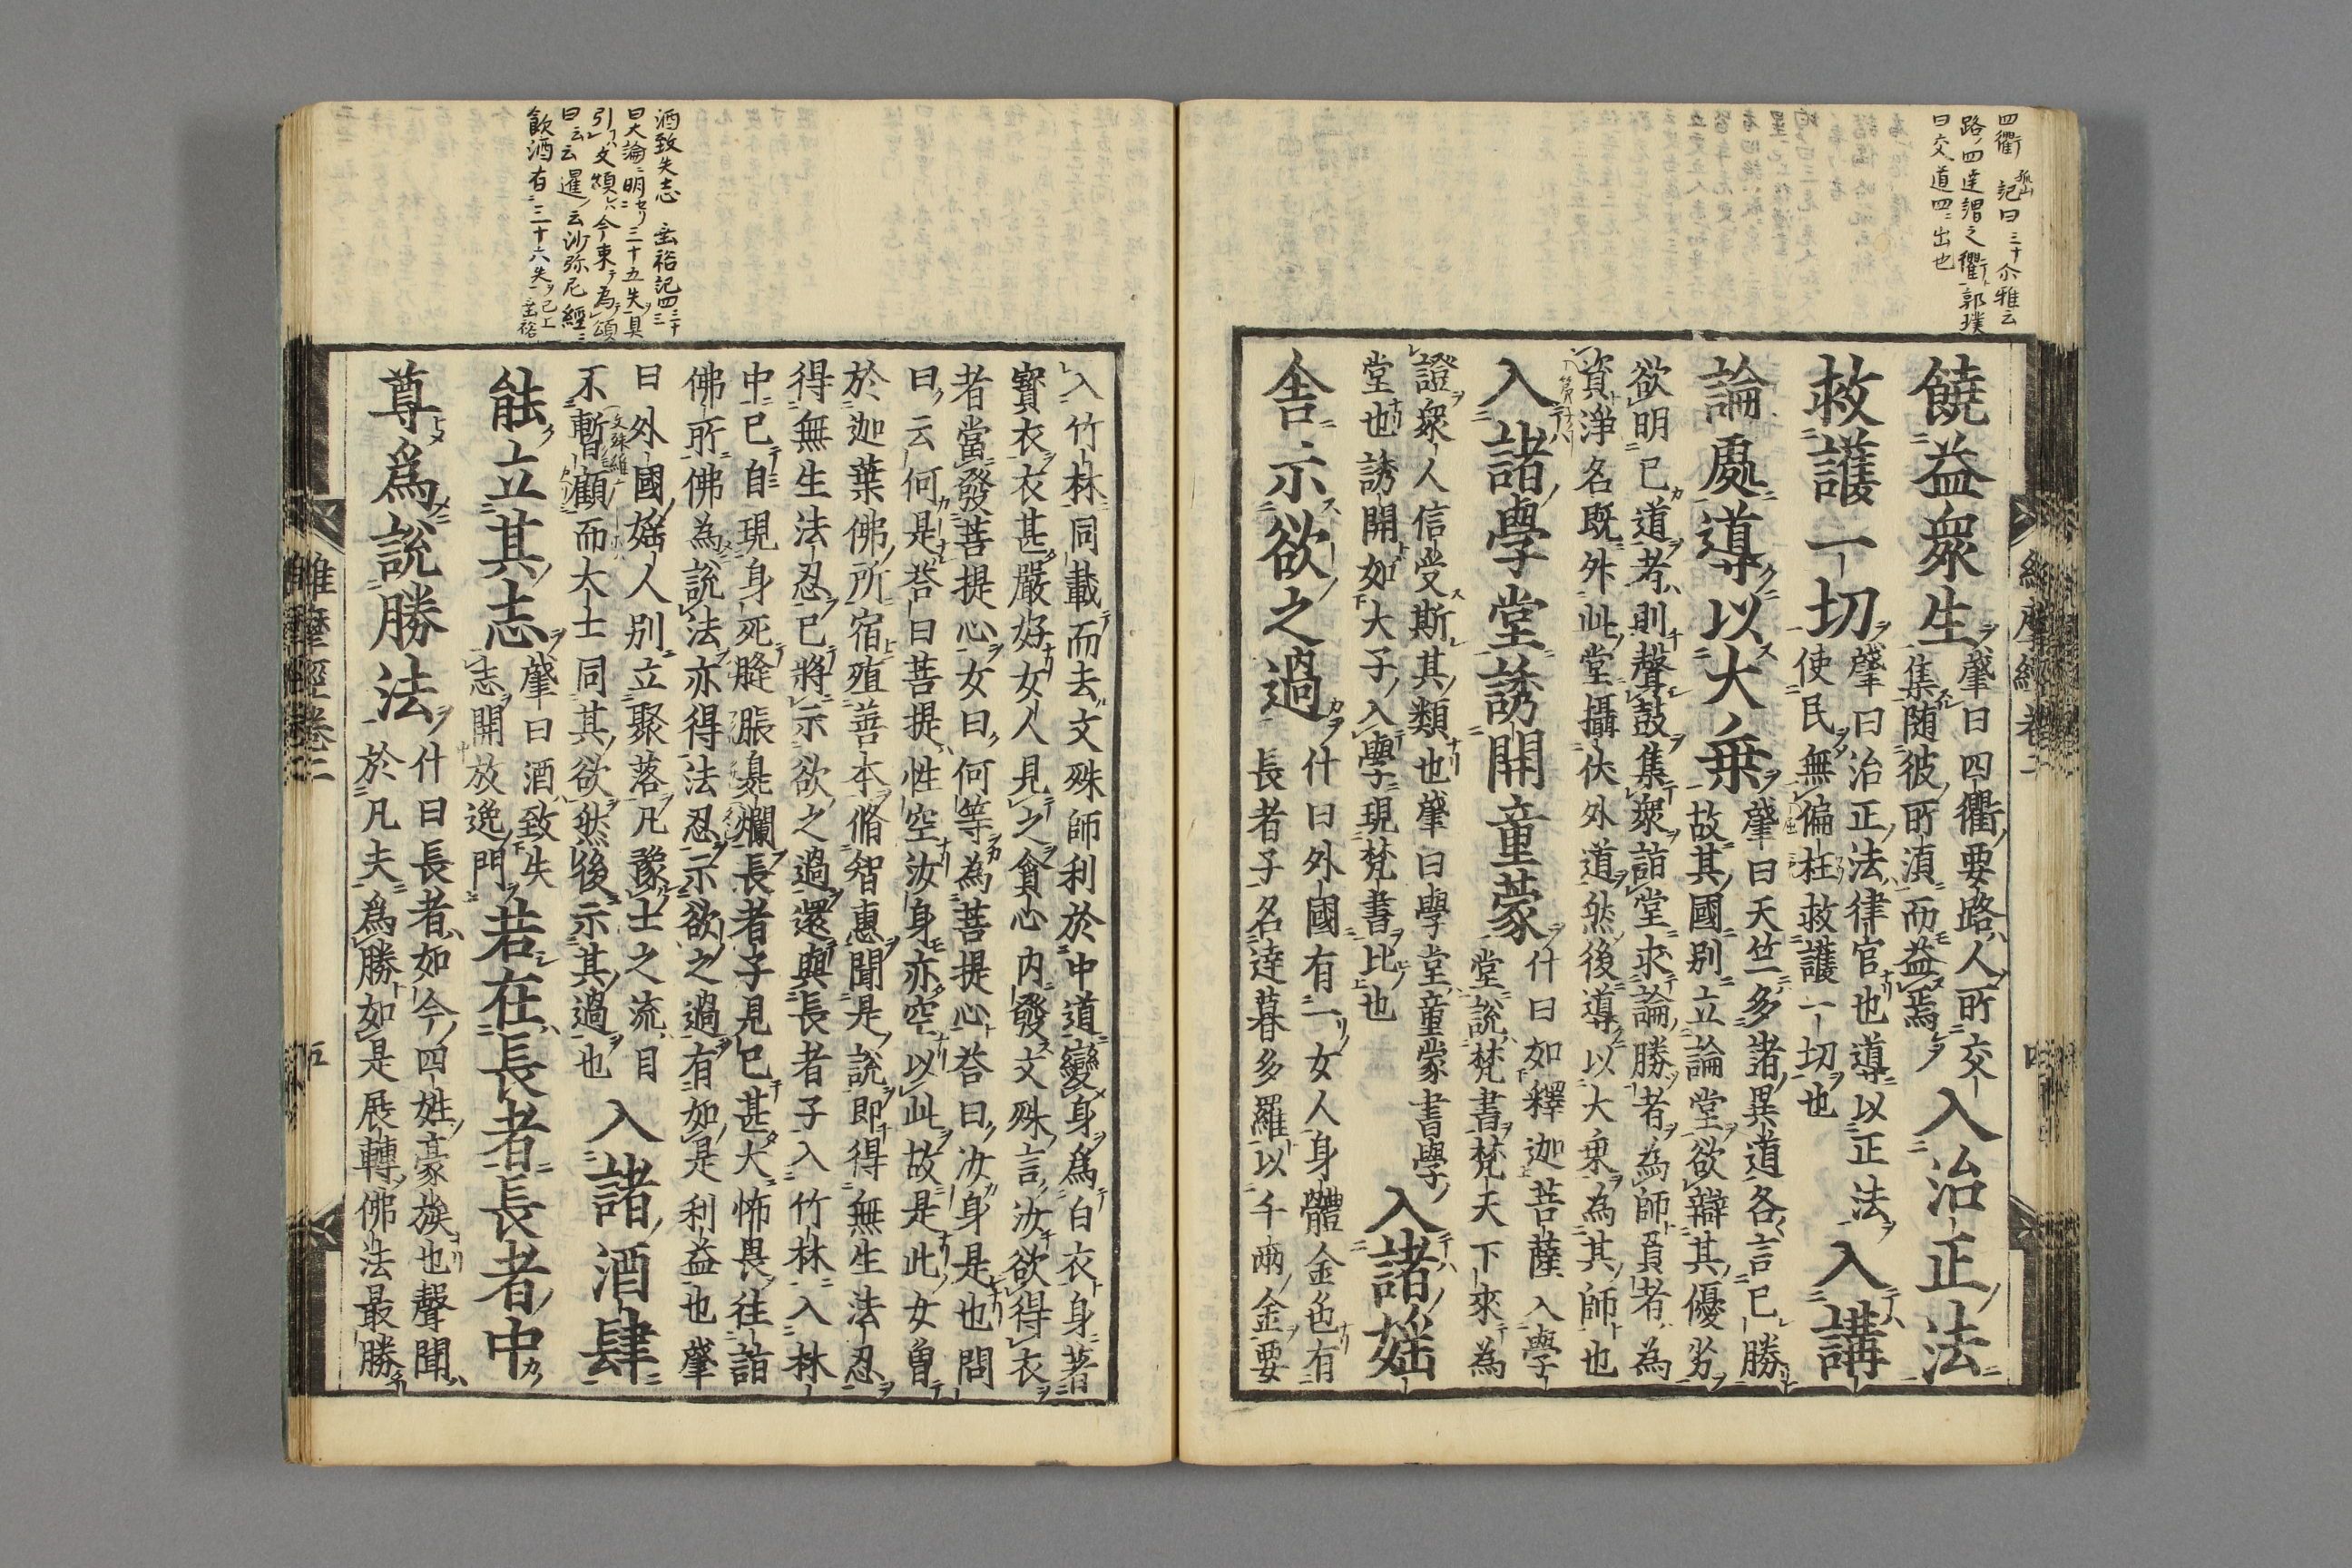 四衢 孤山記曰三十尒雅云
路四達謂之衢郭璞
曰交道四出也
饒益衆生肇曰四衢要路人所交
集随彼所湏而益焉入治正法
救護一切肇曰治正法律官也導以正法
使民無偏枉救護一切也入講
論處導以大乗肇曰天竺多諸異道各言已勝
故其國別立論堂欲辯其優劣
欲明已道者則聲鼓集衆詣堂求論勝者為師負者為
資淨名既外此堂攝伏外道然後導以大乗為其師也
入諸學堂誘開童蒙什曰如釋迦菩薩入學
堂說梵書梵天下來為
證衆人信受斯其類也肇曰學堂童蒙書學
堂也誘開如大子入學現梵書比也
入諸婬
舎示欲之過什曰外國有一女人身體金色有
長者子名達暮多羅以千兩金要
入竹林同載而去文殊師利於中道變身為白衣身著
寳衣衣甚嚴好女人見之貪心内發文殊言汝欲得衣
者當發菩提心女曰何等為菩提心荅曰汝身是也問
曰云何是荅曰菩提性空汝身亦空以此故是此女曽
於迦葉佛所宿殖善本脩智惠聞是說即得無生法忍
得無生法忍已將示欲之過還與長者子入竹林入林
中已自現身死膖脹臭爛長者子見已甚大怖畏往詣
佛所佛為說法亦得法忍示欲之過有如是利益也肇
曰外國婬人別立聚落凡豫士之流目
不暫顧而大士同其欲然後示其過也
入諸酒肆
能立其志肇曰酒致失
志開放逸門若在長者長者中
尊為說勝法什曰長者如今四姓豪族也聲聞
於凡夫為勝如是展轉佛法最勝
酒致失志 垂裕記四三十
曰大論明三十五失具
引文煩今束為頌
曰云云暹云沙弥尼經
飲酒有三十六失已上垂裕
維摩經卷二
五
維摩經卷二
四